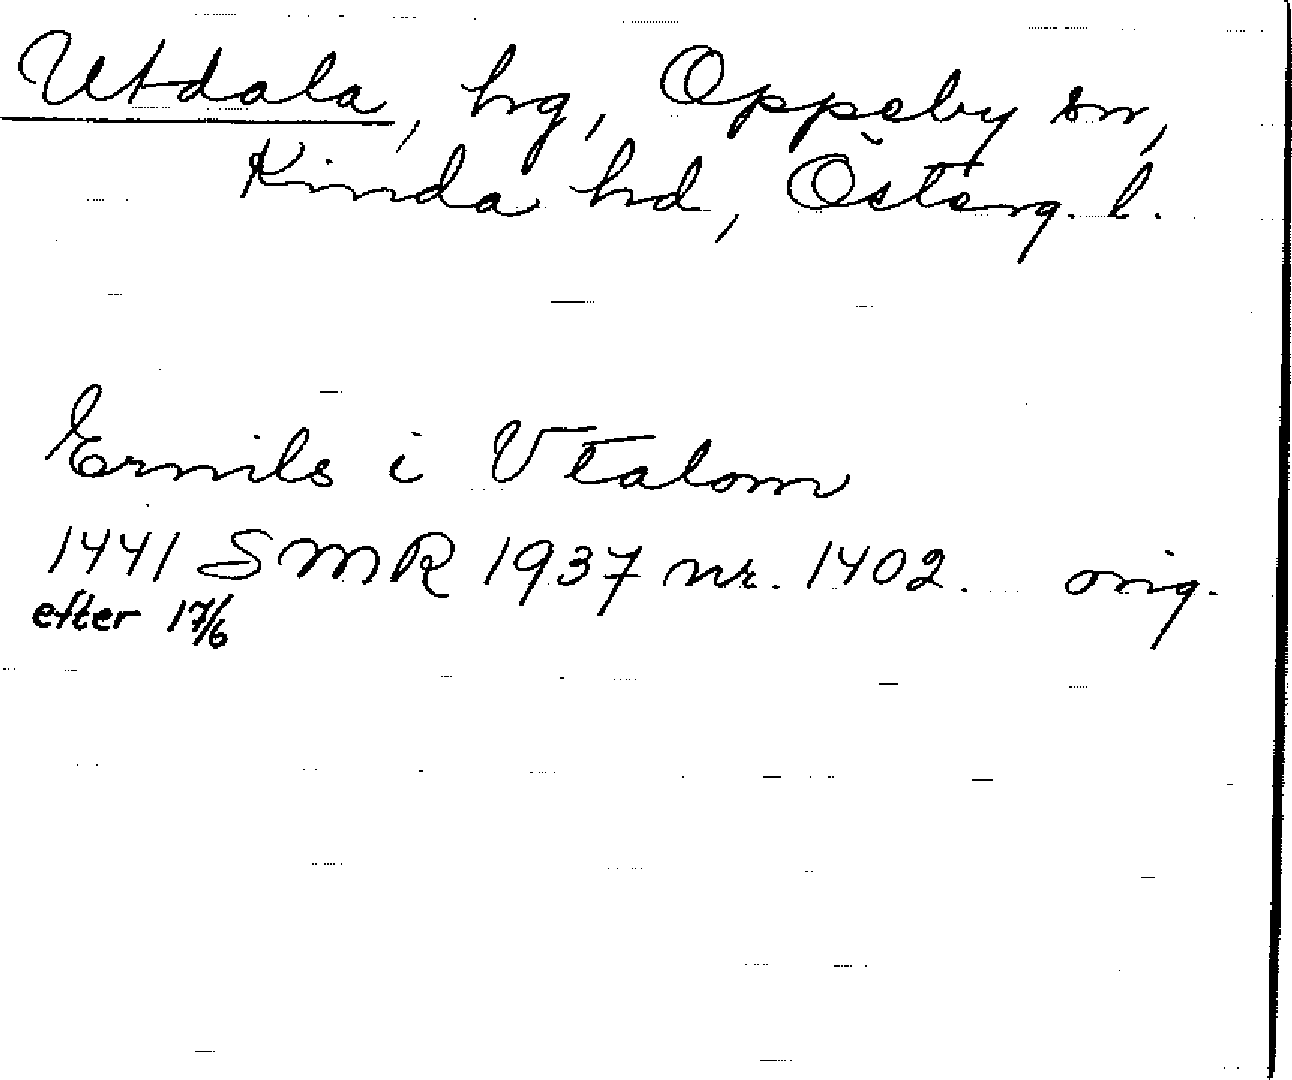 Utdala, hg, Oppeby sn,
Kinda hd, Österg. l.
Ermils i Vtalom
1441 SMR 1937 nr. 1402. orig.
efter 17/6